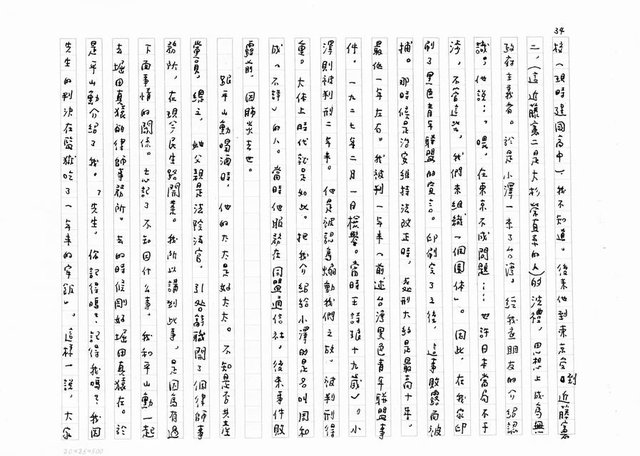 34
校(現時建國高中)我不知道。後來他到東京受到近藤憲
二、(這近藤憲二是大杉榮直系的人)的洗禮,思想上成爲無
政府主義者。於是小澤一來了台灣,經我查朋友的介紹認
識。他說:「喂,在東京不成問題……也許日本當局不干
涉,不管這些,我們來組織一個團体」。因此,在我家印
刷了黑色青年聯盟的宣言。印刷完了之後,這事敗露而被
捕。那時候是治安維持法改正時,尤刑大約是最高十年,
最低一年左右。我被判一年半(前述台灣黑色青年聯盟事
件,一九二七年二月一日檢舉。當時王詩琅十九歲)。小
澤則被判刑二年半。他是被認爲煽動我們之故,被判刑得
重。大体上時代就是如此。把我介紹給小澤的是名叫周和
成(不詳)的人。當時他服務在同盟通信社,後來事件敗
露前,因肺炎去世。
跟平山勳喝酒時,他的太太是好太太。不知是否共產
黨員,總之,她父親是法院法官,引咎辭職開了個律師事
務所,在現今民生路開業。我所以講到此事,是因爲有過
下面事情的關係。忘記了不知因什么事,我和平山勳一起
去堀田真猿的律師事務所。去的時候剛好堀田真猿在。於
是平山勳介紹了我。「先生,你記得嗎?記得我嗎?我因
先生的判決在監獄吃了一年半的牢飯」。這樣一說,大家
20×25=500